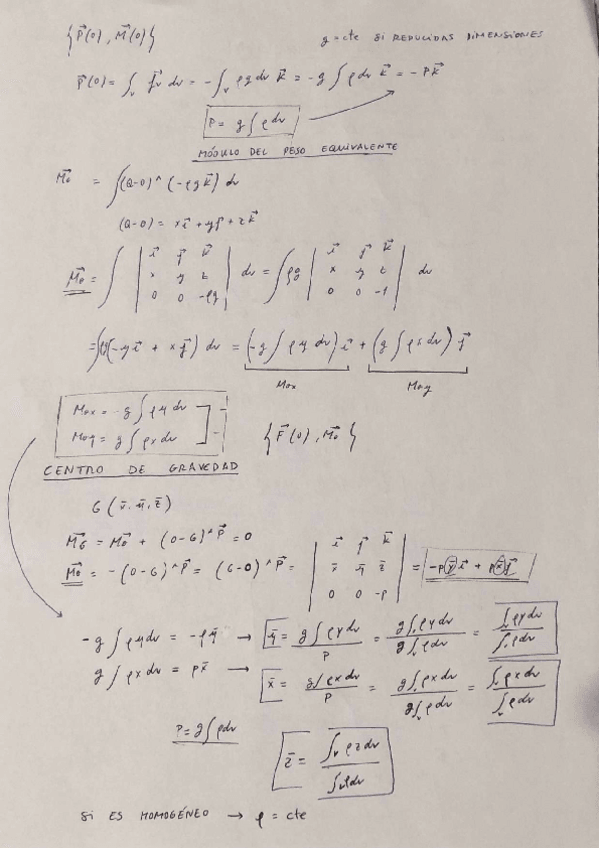 {P⃗(O), M⃗(O)}    g = cte si REDUCIDAS DIMENSIONES
P⃗(O) = ∫ᵥ f⃗ᵥ dv = -∫ᵥ ρg dv k⃗ = -g ∫ ρ dv k⃗ = -P k⃗
P = g ∫ ρ dv
MÓDULO DEL PESO EQUIVALENTE
M⃗o = ∫(Q-O) ^ (-ρg k⃗) dv
(Q-O) = x i⃗ + y j⃗ + z k⃗
M⃗o = ∫ | i⃗ j⃗ k⃗ ; x y z ; 0 0 -ρg | dv = ∫ ρg | i⃗ j⃗ k⃗ ; x y z ; 0 0 -1 | dv
(-y i⃗ + x j⃗) dv = (-g ∫ ρ y dv) i⃗ + (g ∫ ρ x dv) j⃗
Mox    Moy
Mox = -g ∫ ρ y dv
Moy = g ∫ ρ x dv    {F⃗(O), M⃗o}
CENTRO DE GRAVEDAD
G (x̄, ȳ, z̄)
M⃗G = M⃗o + (O-G) ^ P⃗ = 0
M⃗o = -(O-G) ^ P⃗ = (G-O) ^ P⃗ = | i⃗ j⃗ k⃗ ; x̄ ȳ z̄ ; 0 0 -P | = -P ȳ i⃗ + P x̄ j⃗
-g ∫ ρ y dv = -P ȳ → ȳ = g ∫ ρ y dv / P = g ∫ᵥ ρ y dv / g ∫ᵥ ρ dv = ∫ᵥ ρ y dv / ∫ᵥ ρ dv
g ∫ ρ x dv = P x̄ → x̄ = g ∫ ρ x dv / P = g ∫ᵥ ρ x dv / g ∫ᵥ ρ dv = ∫ᵥ ρ x dv / ∫ᵥ ρ dv
P = g ∫ ρ dv    z̄ = ∫ᵥ ρ z dv / ∫ᵥ ρ dv
Si ES HOMOGÉNEO → ρ = cte